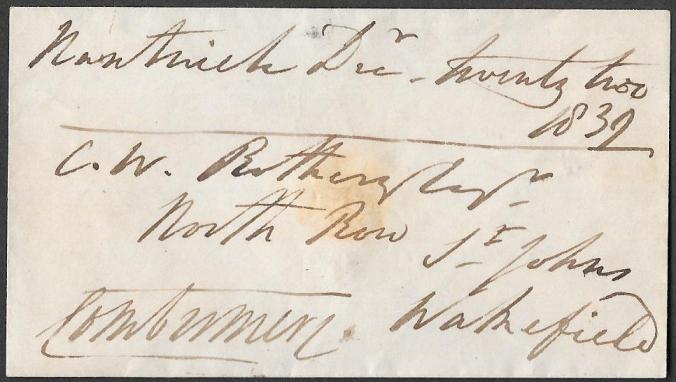 Nantwich Decr. twenty two
1839
C. W. Rothery Esqr
North Row St Johns
Combermere. Wakefield